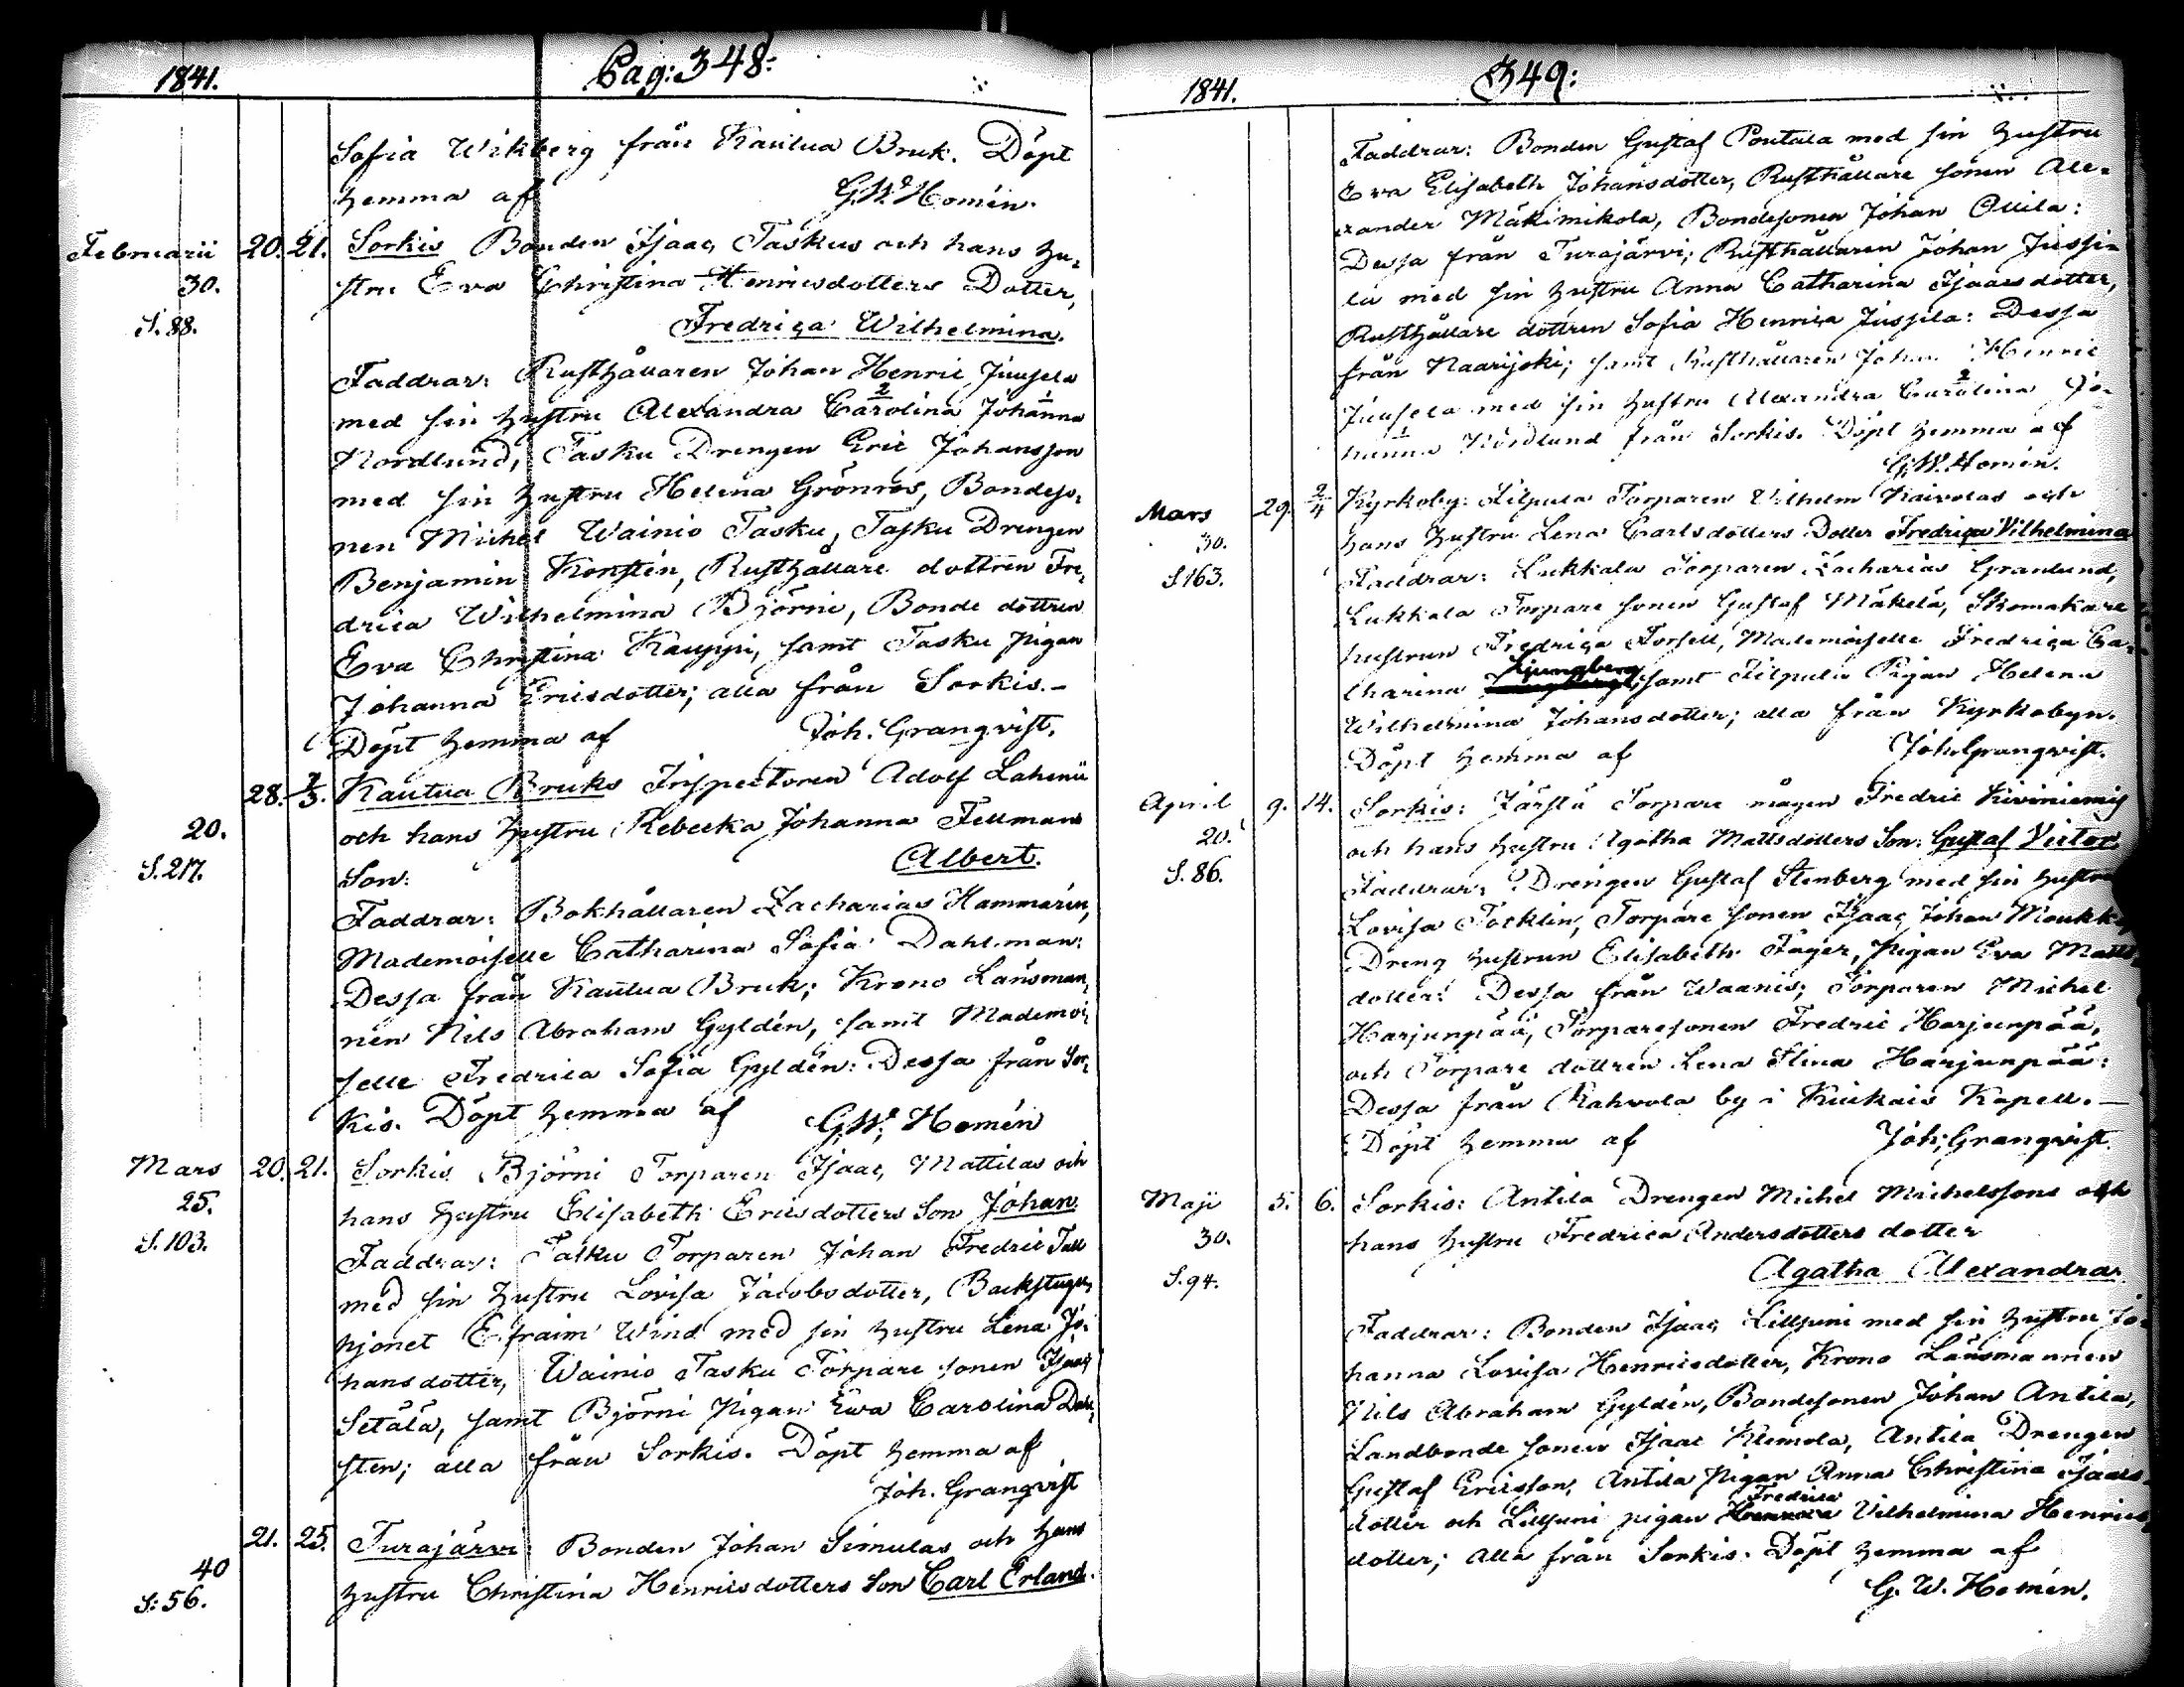 1841. Pag: 348:
Sofia Wikberg från Kautua Bruk. Döpt
hemma af G.W. Homén.
Februarii 20. 21. Sorkis Bonden Isaac Taskus och hans hu-
30. stru Eva Christina Henricsdotters Dotter,
S. 88. Fredrica Wilhelmina.
Faddrar: Rusthållaren Johan Henric Juusela
med sin hustru Alexandra Carolina Johanna
Nordlund, Tasku Drengen Eric Johansson
med sin hustru Helena Grönros, Bondeso-
nen Michel Wainio Tasku, Tasku Drengen
Benjamin Korstén, Rusthållare dottren Fre-
drica Wilhelmina Björni, Bonde dottren
Eva Christina Kauppi, samt Tasku pigan
Johanna Ericsdotter; alla från Sorkis.-
Döpt hemma af Joh. Granqvist.
28. 2/3. Kautua Bruks Inspectoren Adolf
20. och hans hustru Rebecka Johanna Fellmans
S. 217. Son: Albert.
Faddrar: Bokhållaren Zacharias Hammarén,
Mademoiselle Catharina Sofia Dahlman:
Dessa från Kautua Bruk; Krono Länsman-
nen Nils Abraham Gyldén, samt Mademoi-
selle Fredrica Sofia Gyldén: Dessa från Sor-
kis. Döpt hemma af G.W. Homén
Mars 20. 21. Sorkis Björni Torparen Isaac Mattilas och
25. hans hustru Elisabeth Ericsdotters Son Johan.
S. 103. Faddrar: Tasku Torparen Johan Fredric Tall
med sin hustru Lovisa Jacobsdotter, Backstugu-
hjonet Efraim Wind med sin hustru Lena Jo-
hansdotter, Wainio Tasku Torpare sonen Isaac
Setälä, samt Björni Pigan Ewa Carolina Dahl-
sten; alla från Sorkis. Döpt hemma af
Joh. Granqvist
21. 25. Turajärvi: Bonden Johan Simulas och hans
40 hustru Christina Henricsdotters Son Carl Erland.
S: 56.
1841. 349:
Faddrar: Bonden Gustaf Pontala med sin hustru
Eva Elisabeth Johansdotter, Rusthållare sonen Ale-
xander Mäkimikola, Bondesonen Johan Ollila:
Dessa från Turajärvi; Rusthållaren Johan Jussi-
la med sin hustru Anna Catharina Isaacsdotter,
Rusthållare dottren Sofia Henrica Jussila: Dessa
från Naarijoki; samt Rusthållaren Johan Henric
Juusela med sin hustru Alexandra Carolina Jo-
hanna Nordlund från Sorkis. Döpt hemma af
G.W. Homén.
Mars 29. 2/4 Kyrkoby: Filpula Torparen Vilhelm Kaivolas och
30. hans hustru Lena Carlsdotters Dotter Fredrica Vilhelmina
S 163. Faddrar: Lukkala Torparen Zacharias Granlund,
Lukkala Torpare sonen Gustaf Mäkelä, Skomakare
hustrun Fredrica Forsell, Mademoiselle Fredrica Ca-
tharina Ljungberg, samt Filpula Pigan Helena
Wilhelmina Johansdotter; alla från Kyrkobyn.
Döpt hemma af Joh. Granqvist.
April 9. 14. Sorkis: Torpare mågen Fredric Kiviniemis
20. och hans hustru Agatha Mattsdotters Son: Gustaf Victor.
S. 86. Faddrar: Drengen Gustaf Stenberg med sin hustru
Lovisa Täcklin, Torpare sonen Isaac Johan
Dreng hustrun Elisabeth Fager, Pigan Eva Matts-
dotter: Dessa från Waanis; Torparen Michel
Harjunpää, Torparesonen Fredric Harjunpää,
och Torpare dottren Lena Stina Harjunpää:
Dessa från Rahvola by i Kiukais Kapell.—
Döpt hemma af Joh; Granqvist.
Maji 5. 6. Sorkis: Antila Drengen Michel Michelssons och
30. hans hustru Fredrica Andersdotters dotter
S. 94. Agatha Alexandra.
Faddrar: Bonden Isaac Lillsuni med sin hustru Jo-
hanna Lovisa Henricsdotter, Krono Länsmannen
Nils Abraham Gyldén, Bondesonen Johan Antila,
Landbonde sonen Isaac Klemola, Antila Drengen
Gustaf Ericsson, Antila Pigan Anna Christina Isaacs-
dotter och Lillsuni pigan Fredrica Vilhelmina Henrics-
dotter; alla från Sorkis. Döpt hemma af
G. W. Homén.